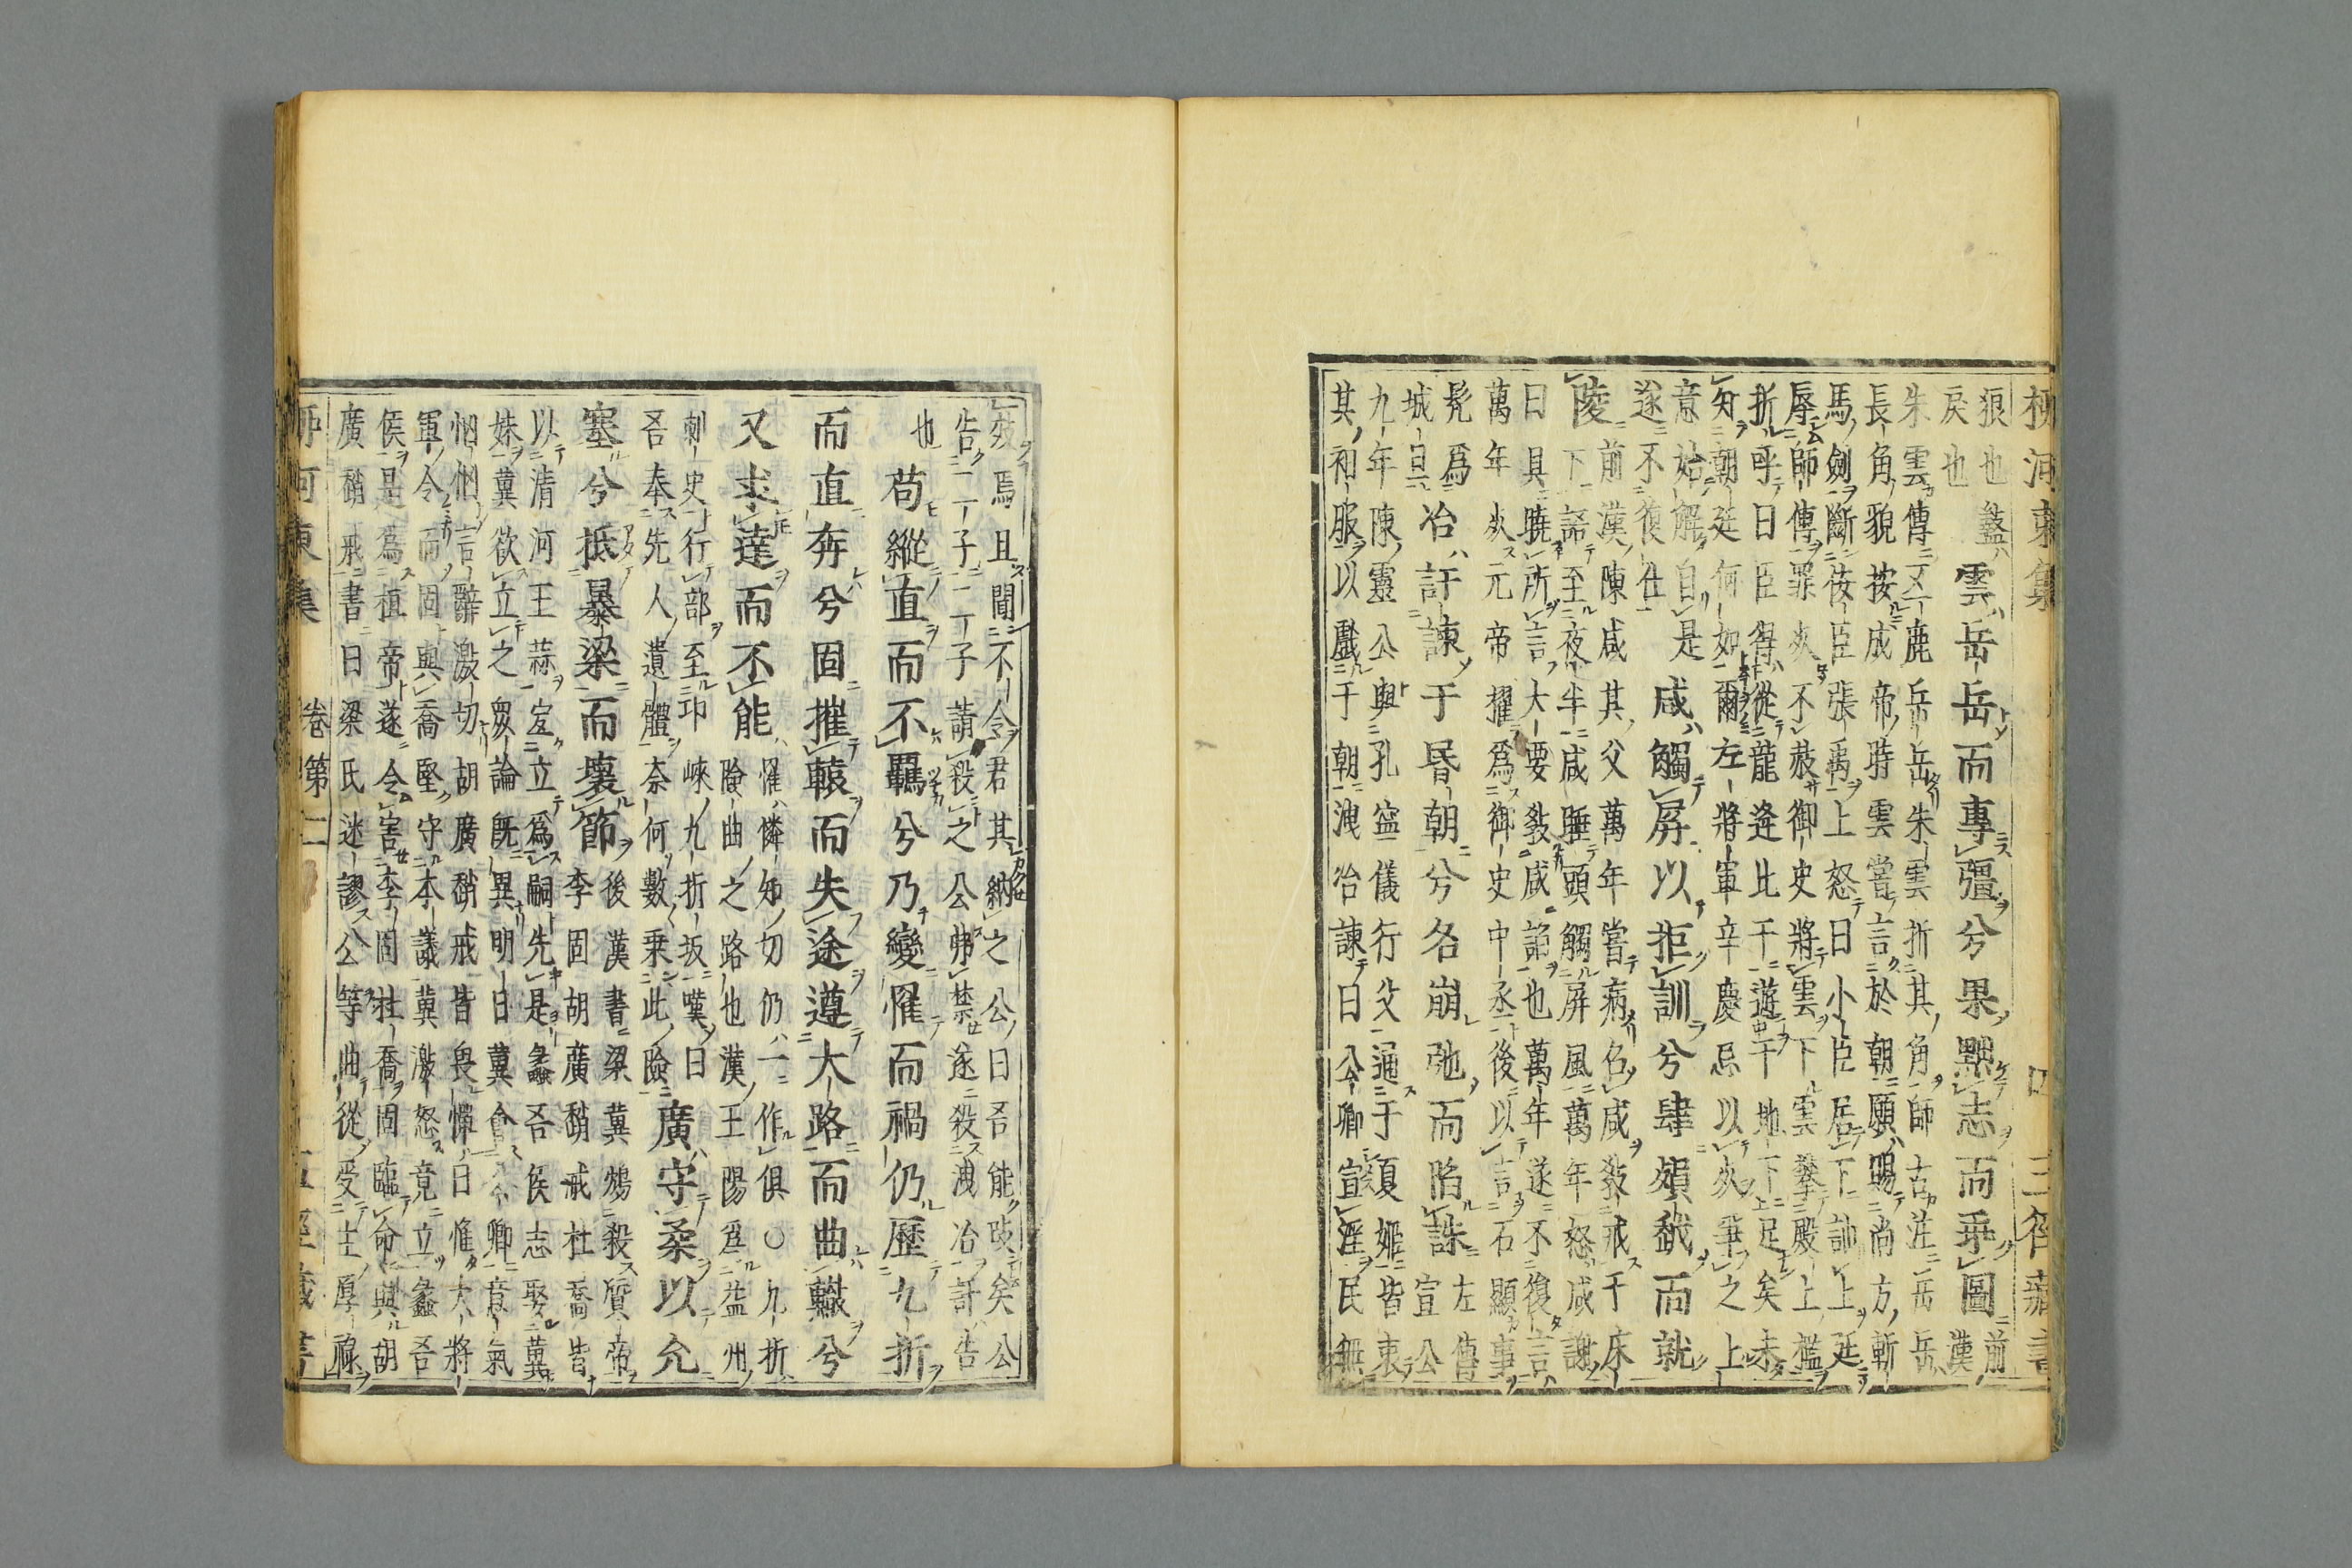 柳河東集
三徑藏書
狠也盭
戾也
雲岳岳而專彊兮果黜志而乖圖
前
漢
朱雲傳五鹿岳岳朱雲折其角師古注岳岳
長角貌按成帝時雲嘗言於朝願賜尚方斬
馬劍斷佞臣張禹上怒曰小臣居下訕上廷
辱師傅罪死不赦御史將雲下雲攀殿上檻
折呼曰臣得從龍逄比干遊干地下足矣未
知朝廷何如爾左將軍辛慶忌以死爭之上
意始解自是
遂不復仕
咸觸屏以拒訓兮肆殞戮而就
陵
前漢陳咸其父萬年嘗病召咸敎戒于床
下語至夜半咸睡頭觸屏風萬年怒咸謝
曰具曉所言大要敎咸諂也萬年遂不復言
萬年死元帝擢爲御史中丞後以言石顯事
髡爲
城旦
冶訐諫于昏朝兮名崩弛而陷誅
左傳
宣公
九年陳靈公與孔寧儀行父通于夏姬皆衷
其衵服以戲于朝洩冶諫曰公卿宣淫民無
效焉且聞不令君其納之公曰吾能改矣公
告二子二子請殺之公弗禁遂殺洩冶訐告
也
苟縱直而不羈兮乃變罹而禍仍歷九折
而直奔兮固摧轅而失途遵大路而曲轍兮
又求達而不能
罹憐知切仍一作俱○九折
險曲之路也漢王陽爲益州
刺史行部至卭崍九折坂嘆曰
吾奉先人遺體奈何數乗此險
廣守柔以允
塞兮抵暴梁而壞節
後漢書梁冀鴆殺質帝
李固胡廣趙戒杜喬皆
以清河王蒜宜立爲嗣先是蠡吾侯志娶冀
妹冀欲立之衆論旣異明日冀會公卿意氣
怐怐言辭激切胡廣趙戒皆畏憚曰惟大將
軍令而固與喬堅守本議冀激怒竟立蠡吾
侯是爲桓帝遂令害李固杜喬固臨命與胡
廣趙戒書曰梁氏迷謬公等曲從受主厚祿
柳河東集
卷第二
五
三徑藏書